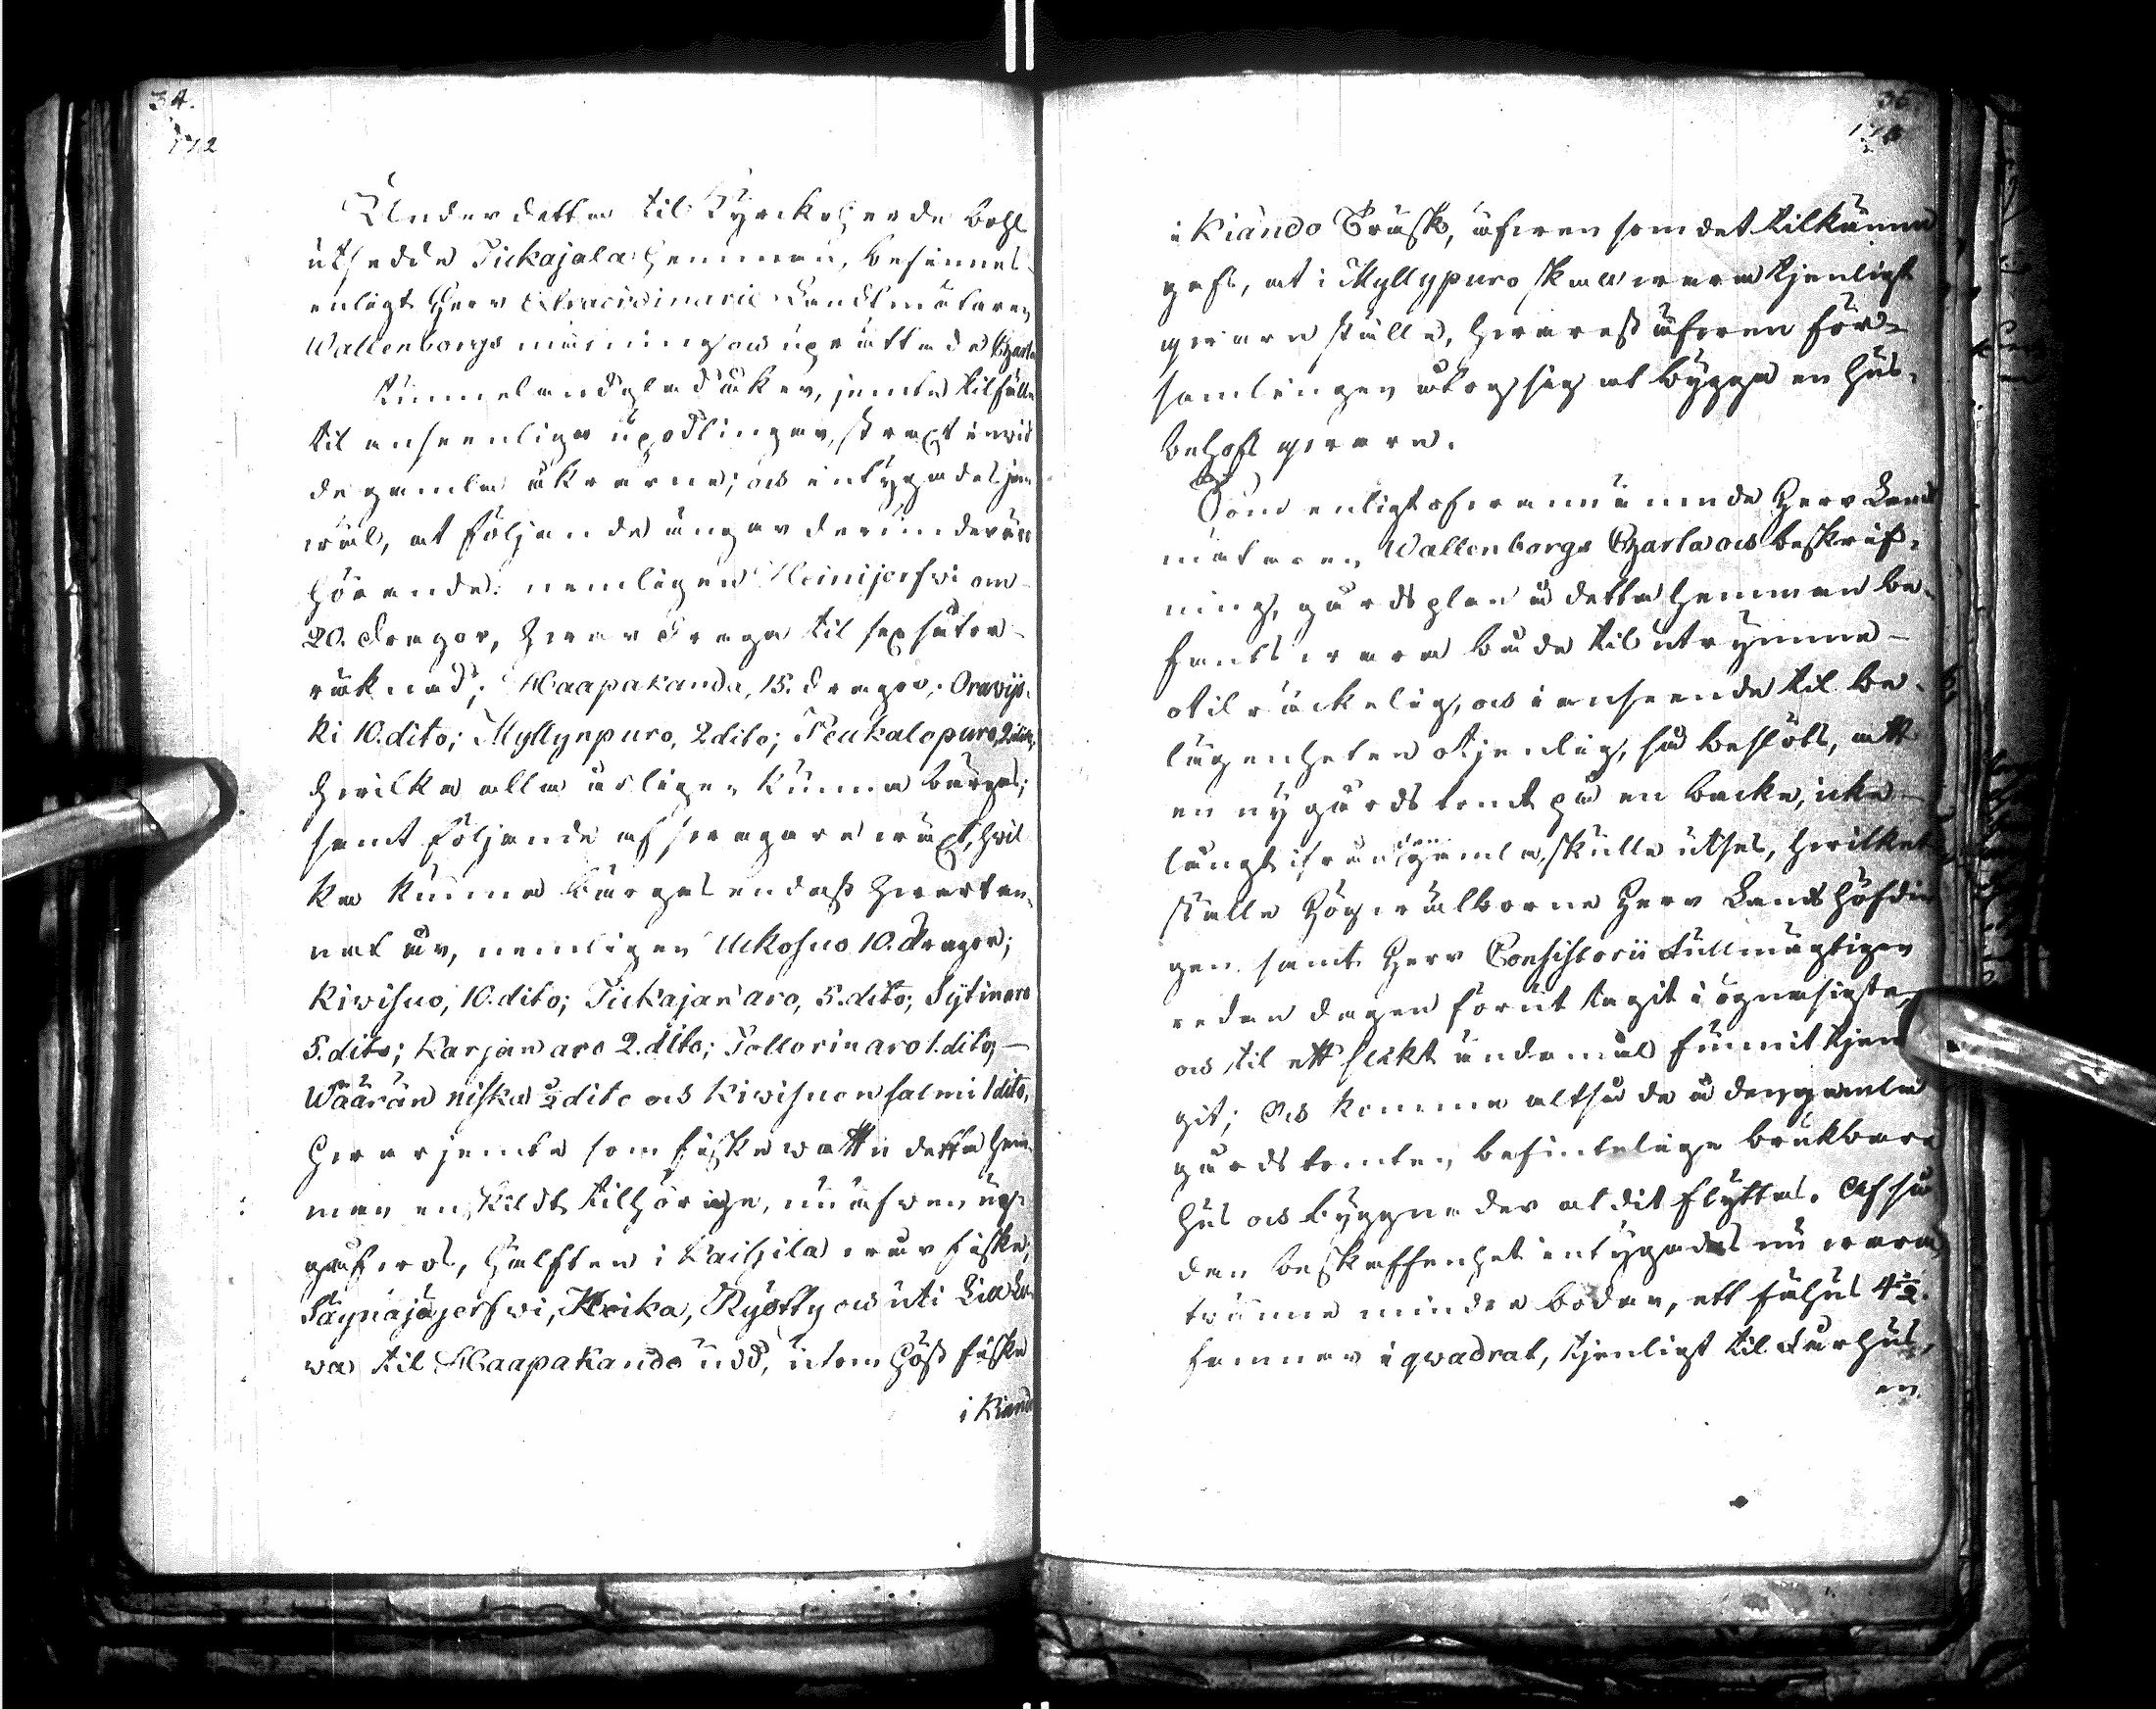 34.
Under detta til Kyrckoherde bohl
utsedde Tickajala hemman, befinnes
enligt Herr Extraordinarie Landtmätaren
Wallenborgs mätning och uprättade Charta
tunneland glad åker, jemte tilfälle
til anseenlige upodlingar, strax invid
de gamla åkrarne; och intygades jem
wäl, at följande ängar derunder äro
hörande: nemligen Heinijerfwi om
20. dragor, hwar draga til sex såtar
räknad; Haapakanda, 15. dragor; Oravijo-
ki 10. dito; Myllynpuro, 2 dito; Peukalopuro, 2 dito,
hwilka alla årligen kunna bärgas;
samt följande af swagare wäxt, hwil
ka kunna bärgas endast hwartan-
nat år, nemligen Uckosuo 10. dragor;
Kiwisuo, 10. dito; Tickajan aro, 5. dito; Sytinaro
5. dito; Karjan aro 2. dito; Pollorin aro 1. dito;
Wäärän niska ½ dito och Kiwisuon salmi 1 dito,
Hwarjemte som fiskewattn detta hem-
man enskildt tillhörige, nu äfwen up-
gafwos, hälften i Kaihila wår fiske,
Säynäjäjerfwi, Koika, Ryötty och uti Liwa
wa til Haapakando udd, utom höst fiske
i Kiando
35
i Kiando Träsk, äfwen som det tilkänna
gafs, at i Myllypuro skall wara tjenligt
qwarn ställe, hwarest äfwen för-
samlingen åtog sig at bygga en hus-
behofs qwarn.
Som enligt ofwannämnde Herr Landt
mätaren Wallenborgs Charta och beskrif-
ning, gårds plan å detta hemman be-
fants wara både til utrymme
otilräckelig, och i anseende til be-
lägenheten otjenlig, så beslöts, att
en ny gårdstomt på en backe, icke
långt ifrån den gamla, skulle utses, hwilket
ställe Högwälborne Herr Landshöfdin
gen samt Herr Consistorii fullmägtigen
redan dagen förut tagit i ögnasigte,
och til ett slikt ändamål funnit tjen
git; Och komma altså de å den gamla
gårdstomten befintelige brukbara
hus och byggnader at dit flyttas. Af så-
dan beskaffenhet intygades nu wara,
twänne mindre bodar, ett fähus 4½.
famnar i qwadrat, tjenligt til Fårhus,
en